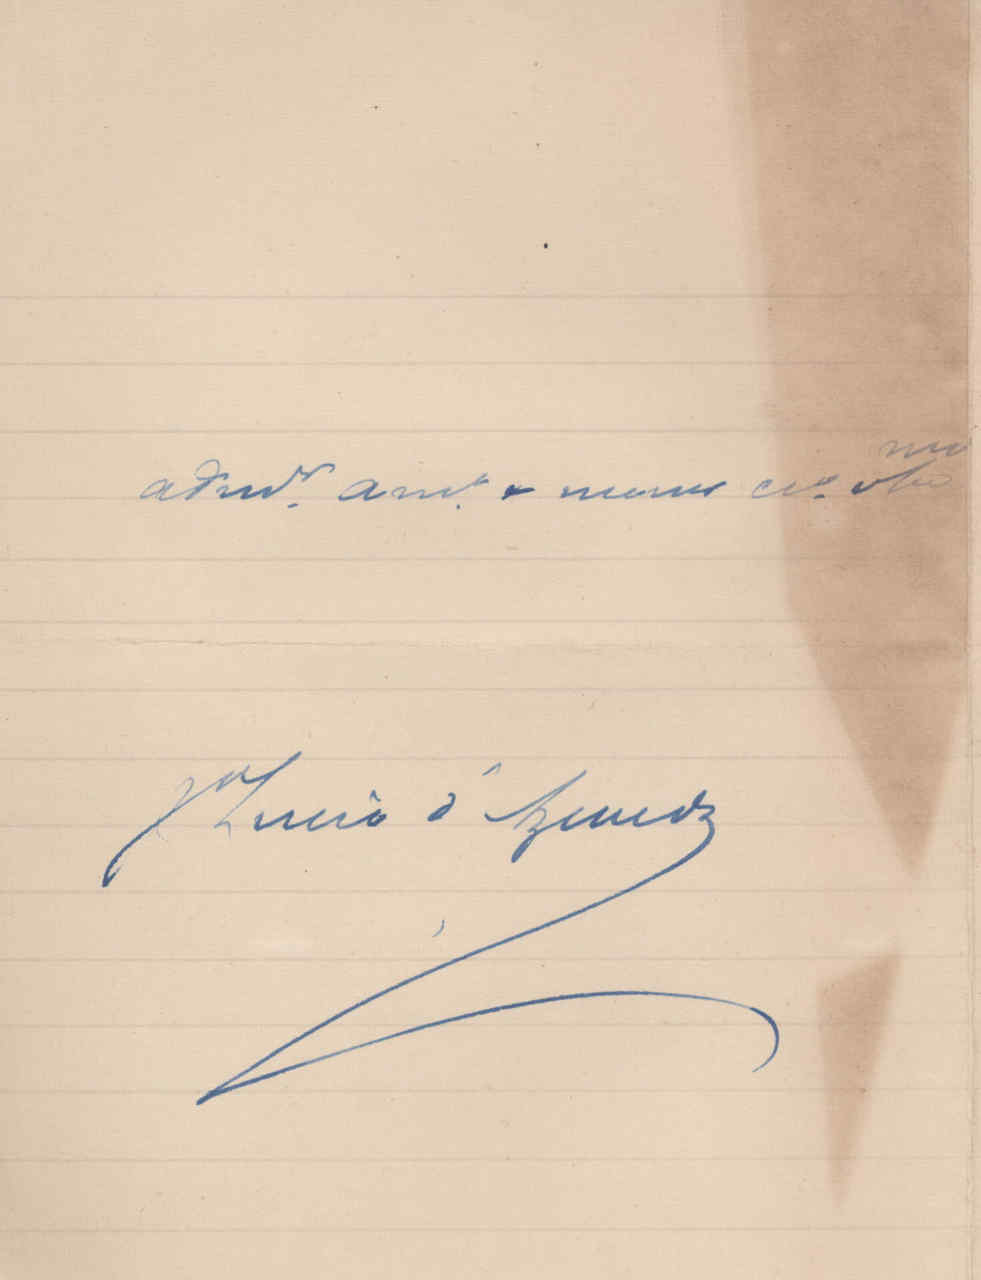 admr. amo. e menor cro. obrmo
J. Lucio d'Azevedo